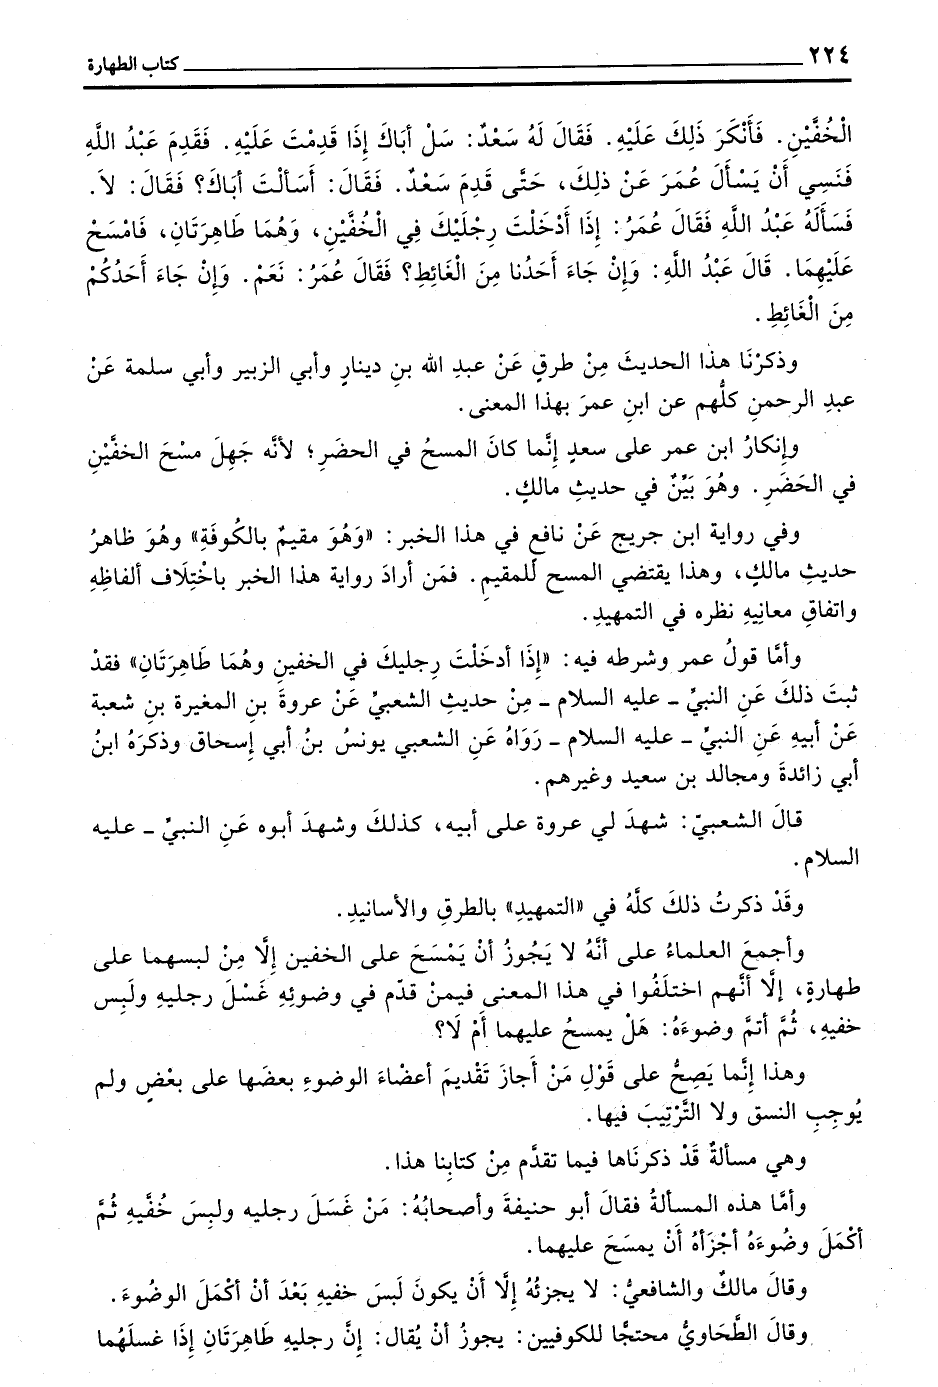 ٢٢٤ كتاب الطهارة
الْخُفَّيْنِ. فَأَنْكَرَ ذَلِكَ عَلَيْهِ. فَقَالَ لَهُ سَعْدٌ: سَلْ أَبَاكَ إِذَا قَدِمْتَ عَلَيْهِ. فَقَدِمَ عَبْدُ اللَّهِ
فَنَسِي أَنْ يَسْأَلَ عُمَرَ عَنْ ذلِكَ، حَتَّى قَدِمَ سَعْدٌ. فَقَالَ: أَسَأَلْتَ أَبَاكَ؟ فَقَالَ: لاَ.
فَسَأَلَهُ عَبْدُ اللَّهِ فَقَالَ عُمَرُ: إِذَا أَدْخَلْتَ رِجْلَيْكَ فِي الْخُفَّيْنِ، وَهُمَا طَاهِرَتَانِ، فَامْسَحْ
عَلَيْهِمَا. قَالَ عَبْدُ اللَّهِ: وَإِنْ جَاءَ أَحَدُنا مِنَ الْغَائِطِ؟ فَقَالَ عُمَرُ: نَعَمْ. وَإِنْ جَاءَ أَحَدُكُمْ
مِنَ الْغَائِطِ.
وذكرْنَا هذا الحديثَ مِنْ طرقٍ عَنْ عبدِ الله بنِ دينارٍ وأبي الزبير وأبي سلمة عَنْ
عبدِ الرحمنِ كلُّهم عن ابنِ عمرَ بهذا المعنى.
وإنكارُ ابن عمر على سعدٍ إنَّما كانَ المسحُ في الحضَرِ؛ لأنَّه جَهِلَ مسْحَ الخفيْنِ
في الحَضَرِ. وهُوَ بَيِّنٌ في حديثِ مالكٍ.
وفي رواية ابن جريج عَنْ نافعٍ في هذا الخبر: «وَهُوَ مقيمٌ بالكُوفَةِ» وهُوَ ظاهرُ
حديثِ مالكٍ، وهذا يقتضي المسح للمقيم. فمَن أرادَ رواية هذا الخبر باخْتِلَاف ألفاظِهِ
واتفاقِ معانِيهِ نظره في التمهيدِ.
وأمَّا قولُ عمر وشرطه فيه: «إِذَا أدخَلْتَ رِجليكَ في الخفينِ وهُمَا طَاهِرَتَانِ» فقدْ
ثبتَ ذلكَ عَنِ النبيِّ ـ عليه السلام ـ مِنْ حديثِ الشعبيِّ عَنْ عروةَ بنِ المغيرة بنِ شعبة
عَنْ أبيهِ عَنِ النبيِّ ـ عليه السلام ـ رَوَاهُ عَنِ الشعبي يونسُ بنُ أبي إسحاق وذكرَهُ ابنُ
أبي زائدةَ ومجالد بن سعيد وغيرهم.
قالَ الشعبيّ: شهدَ لي عروة على أبيه، كذلكَ وشهدَ أبوه عَنِ النبيِّ ـ عليه
السلام.
وقَدْ ذكرتُ ذلكَ كلَّهُ في «التمهيدِ» بالطرقِ والأسانيدِ.
وأجمعَ العلماءُ على أنَّهُ لا يَجُوزُ أنْ يَمْسَحَ على الخفين إلَّا مِنْ لبسهما على
طهارةٍ، إلَّا أنَّهم اختلَفُوا في هذا المعنى فيمنْ قدّم في وضوئِهِ غَسْلَ رجليهِ ولَبِس
خفيهِ، ثُمَّ أتمَّ وضوءَهُ: هَلْ يمسحُ عليهما أمْ لَا؟
وهذا إنَّما يَصِحُّ على قَوْلِ مَنْ أجازَ تَقْديمَ أعضاءَ الوضوءِ بعضَها على بعْضٍ ولم
يُوجِبِ النسق ولا التَّرْتِيبَ فيها.
وهي مسألةٌ قَدْ ذكرنَاها فيما تقدَّم مِنْ كتابِنا هذا.
وأمَّا هذه المسألةُ فقالَ أبو حنيفةَ وأصحابُهُ: مَنْ غَسَلَ رجليه ولبِسَ خُفَّيهِ ثُمَّ
أكْمَلَ وضُوءَهُ أجْزَأهُ أنْ يمسَحَ عليهما.
وقالَ مالكٌ والشافعيُّ: لا يجزئُهُ إلَّا أنْ يكونَ لَبسَ خفيهِ بَعْدَ أنْ أكْمَلَ الوضُوءَ.
وقالَ الطَّحَاويُّ محتجًّا للكوفيين: يجوزُ أنْ يُقال: إنَّ رجليهِ طَاهِرَتَانِ إذَا غسلَهُما